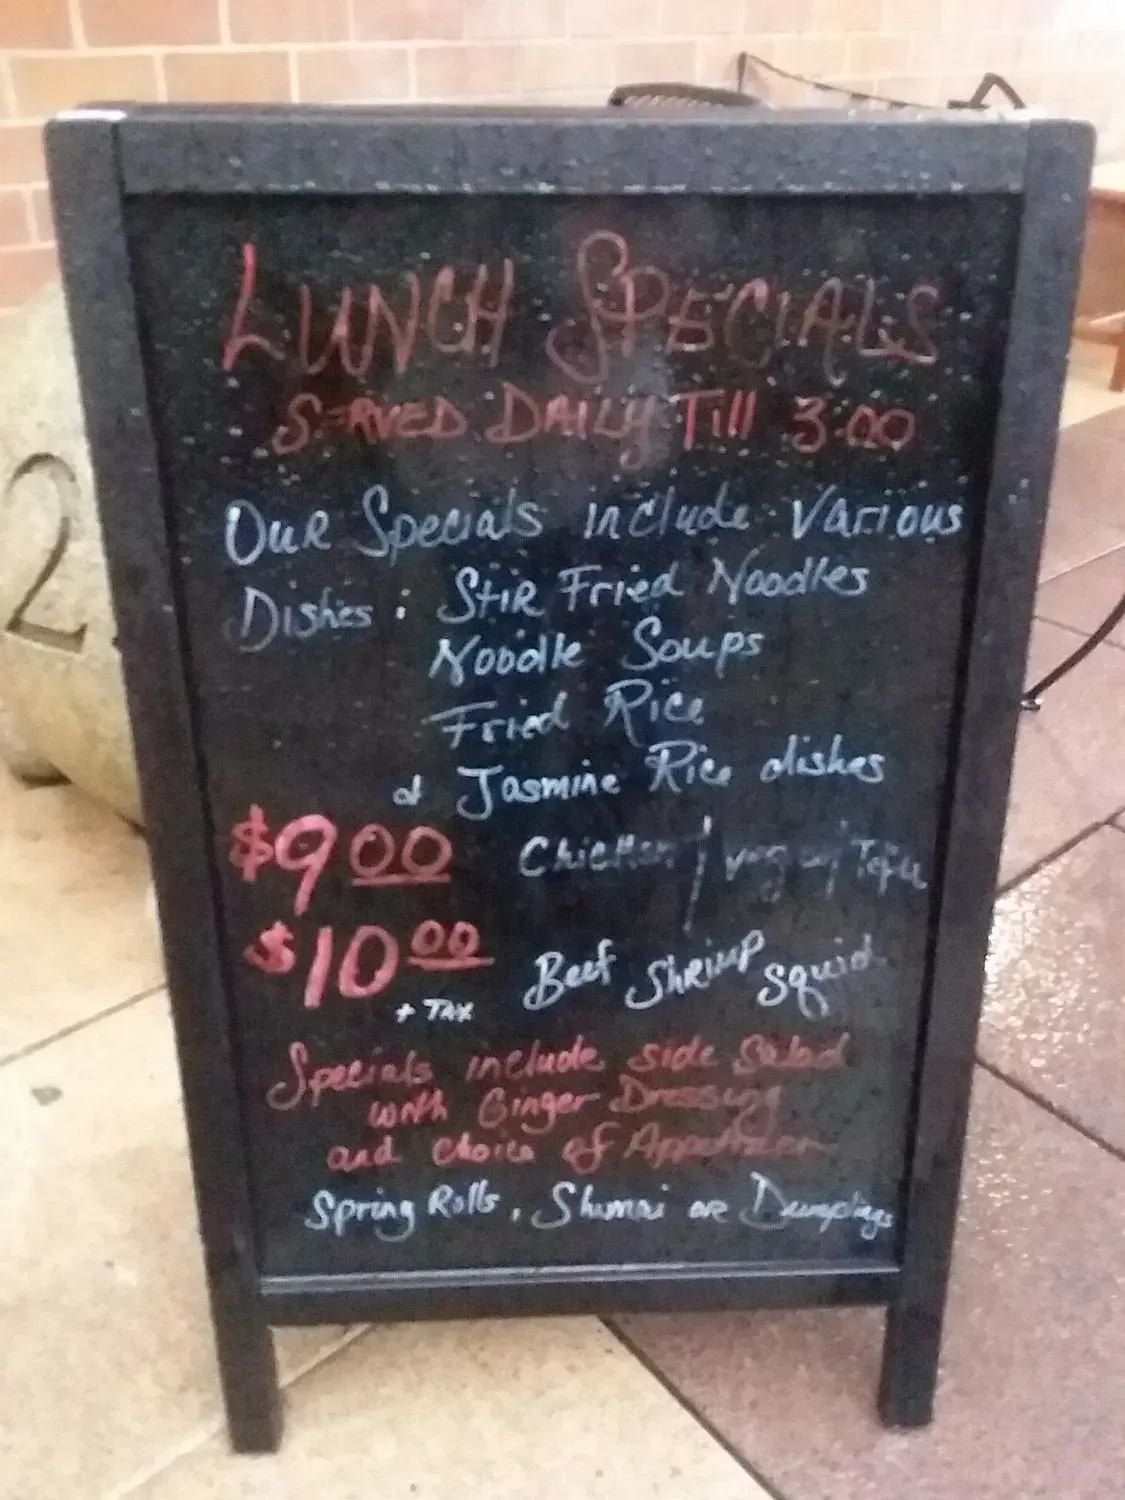 LUNCH SPECIALS
SERVED DAILY Till 3:00
OUR Specials include Various
Dishes : Stir Fried Noodles
Noodle Soups
Fried Rice
& Jasmine Rice dishes
$9 00 Chicken / veg w/ Tofu
$10 00 Beef Shrimp Squid
+ TAX
Specials include side Salad
with Ginger Dressing
and choice of Appetizer
Spring Rolls, Shumai or Dumplings
2